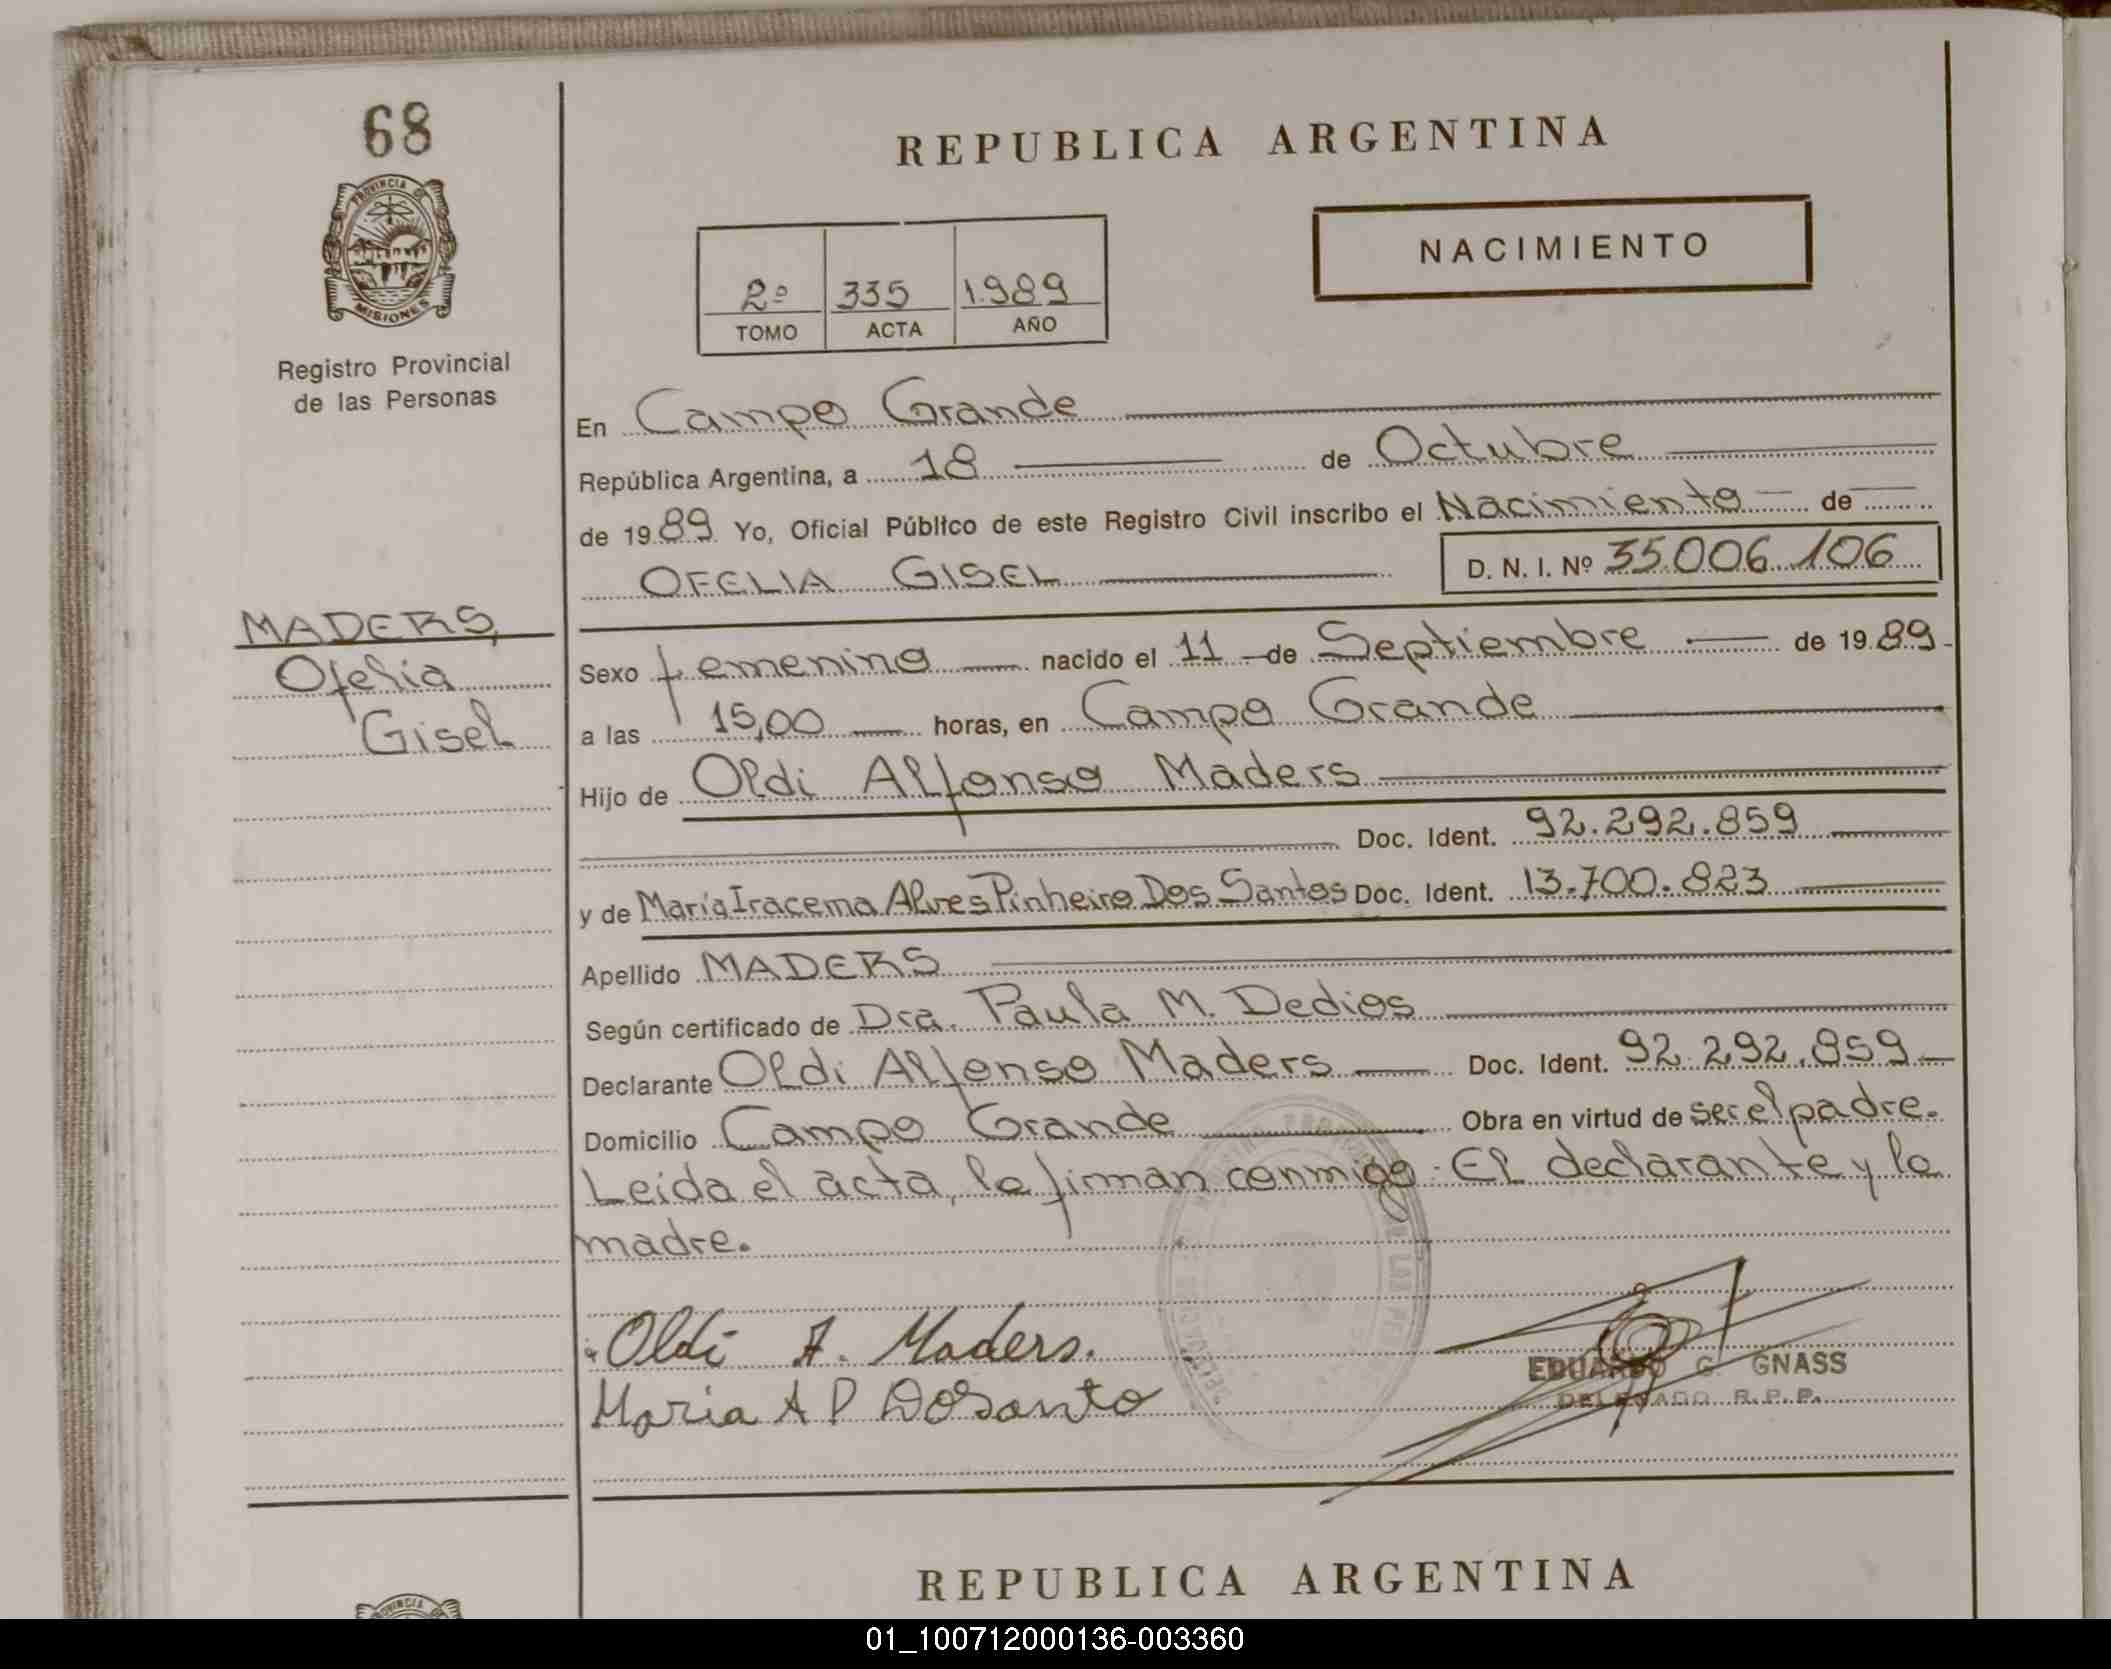 68
PROVINCIA DE
MISIONES
Registro Provincial
de las Personas
MADERS,
Ofelia
Gisel
REPUBLICA ARGENTINA
NACIMIENTO
2º 335 1.989
TOMO ACTA AÑO
En Campo Grande
República Argentina, a 18 de Octubre
de 1989 Yo, Oficial Público de este Registro Civil inscribo el Nacimiento de
OFELIA GISEL D. N. I. Nº 35.006.106
Sexo femenino nacido el 11 de Septiembre de 1989
a las 15,00 horas, en Campo Grande
Hijo de Oldi Alfonso Maders
Doc. Ident. 92.292.859
y de María Iracema Alves Pinheiro Dos Santos Doc. Ident. 13.700.823
Apellido MADERS
Según certificado de Dra. Paula M. Dedios
Declarante Oldi Alfonso Maders Doc. Ident. 92.292.859
Domicilio Campo Grande Obra en virtud de ser el padre.
Leida el acta, la firman conmigo: El declarante y la
madre.
Oldi A. Maders.
Maria A P DoSanto
EDUARDO G. GNASS
DELEGADO R.P.P.
REPUBLICA ARGENTINA
PROVINCIA
01_100712000136-003360